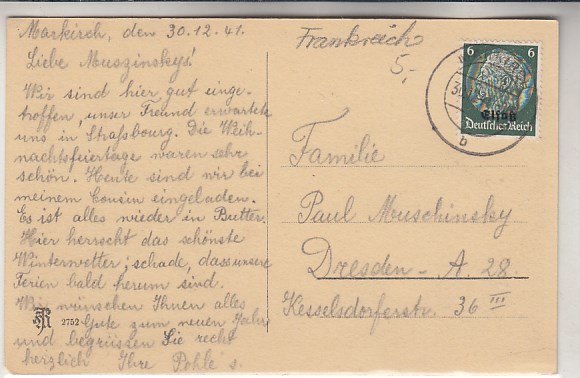 Markirch, den 30.12.41.
Liebe Muszinskys!
Wir sind hier gut einge-
troffen, unser Freund erwartete
uns in Straßbourg. Die Weih-
nachtsfeiertage waren sehr
schön. Heute sind wir bei
meinem Cousin eingeladen.
Es ist alles wieder in Butter.
Hier herrscht das schönste
Winterwetter; schade, dass unsere
Ferien bald herum sind.
Wir wünschen Ihnen alles
Gute zum neuen Jahr
und begrüssen Sie recht
herzlich Ihre Pohle's.
2752
Frankreich
5,-
6 6
Elsaß
Deutsches Reich
b
Familie
Paul Muschinsky
Dresden - A. 28.
Kesselsdorferstr. 36 III